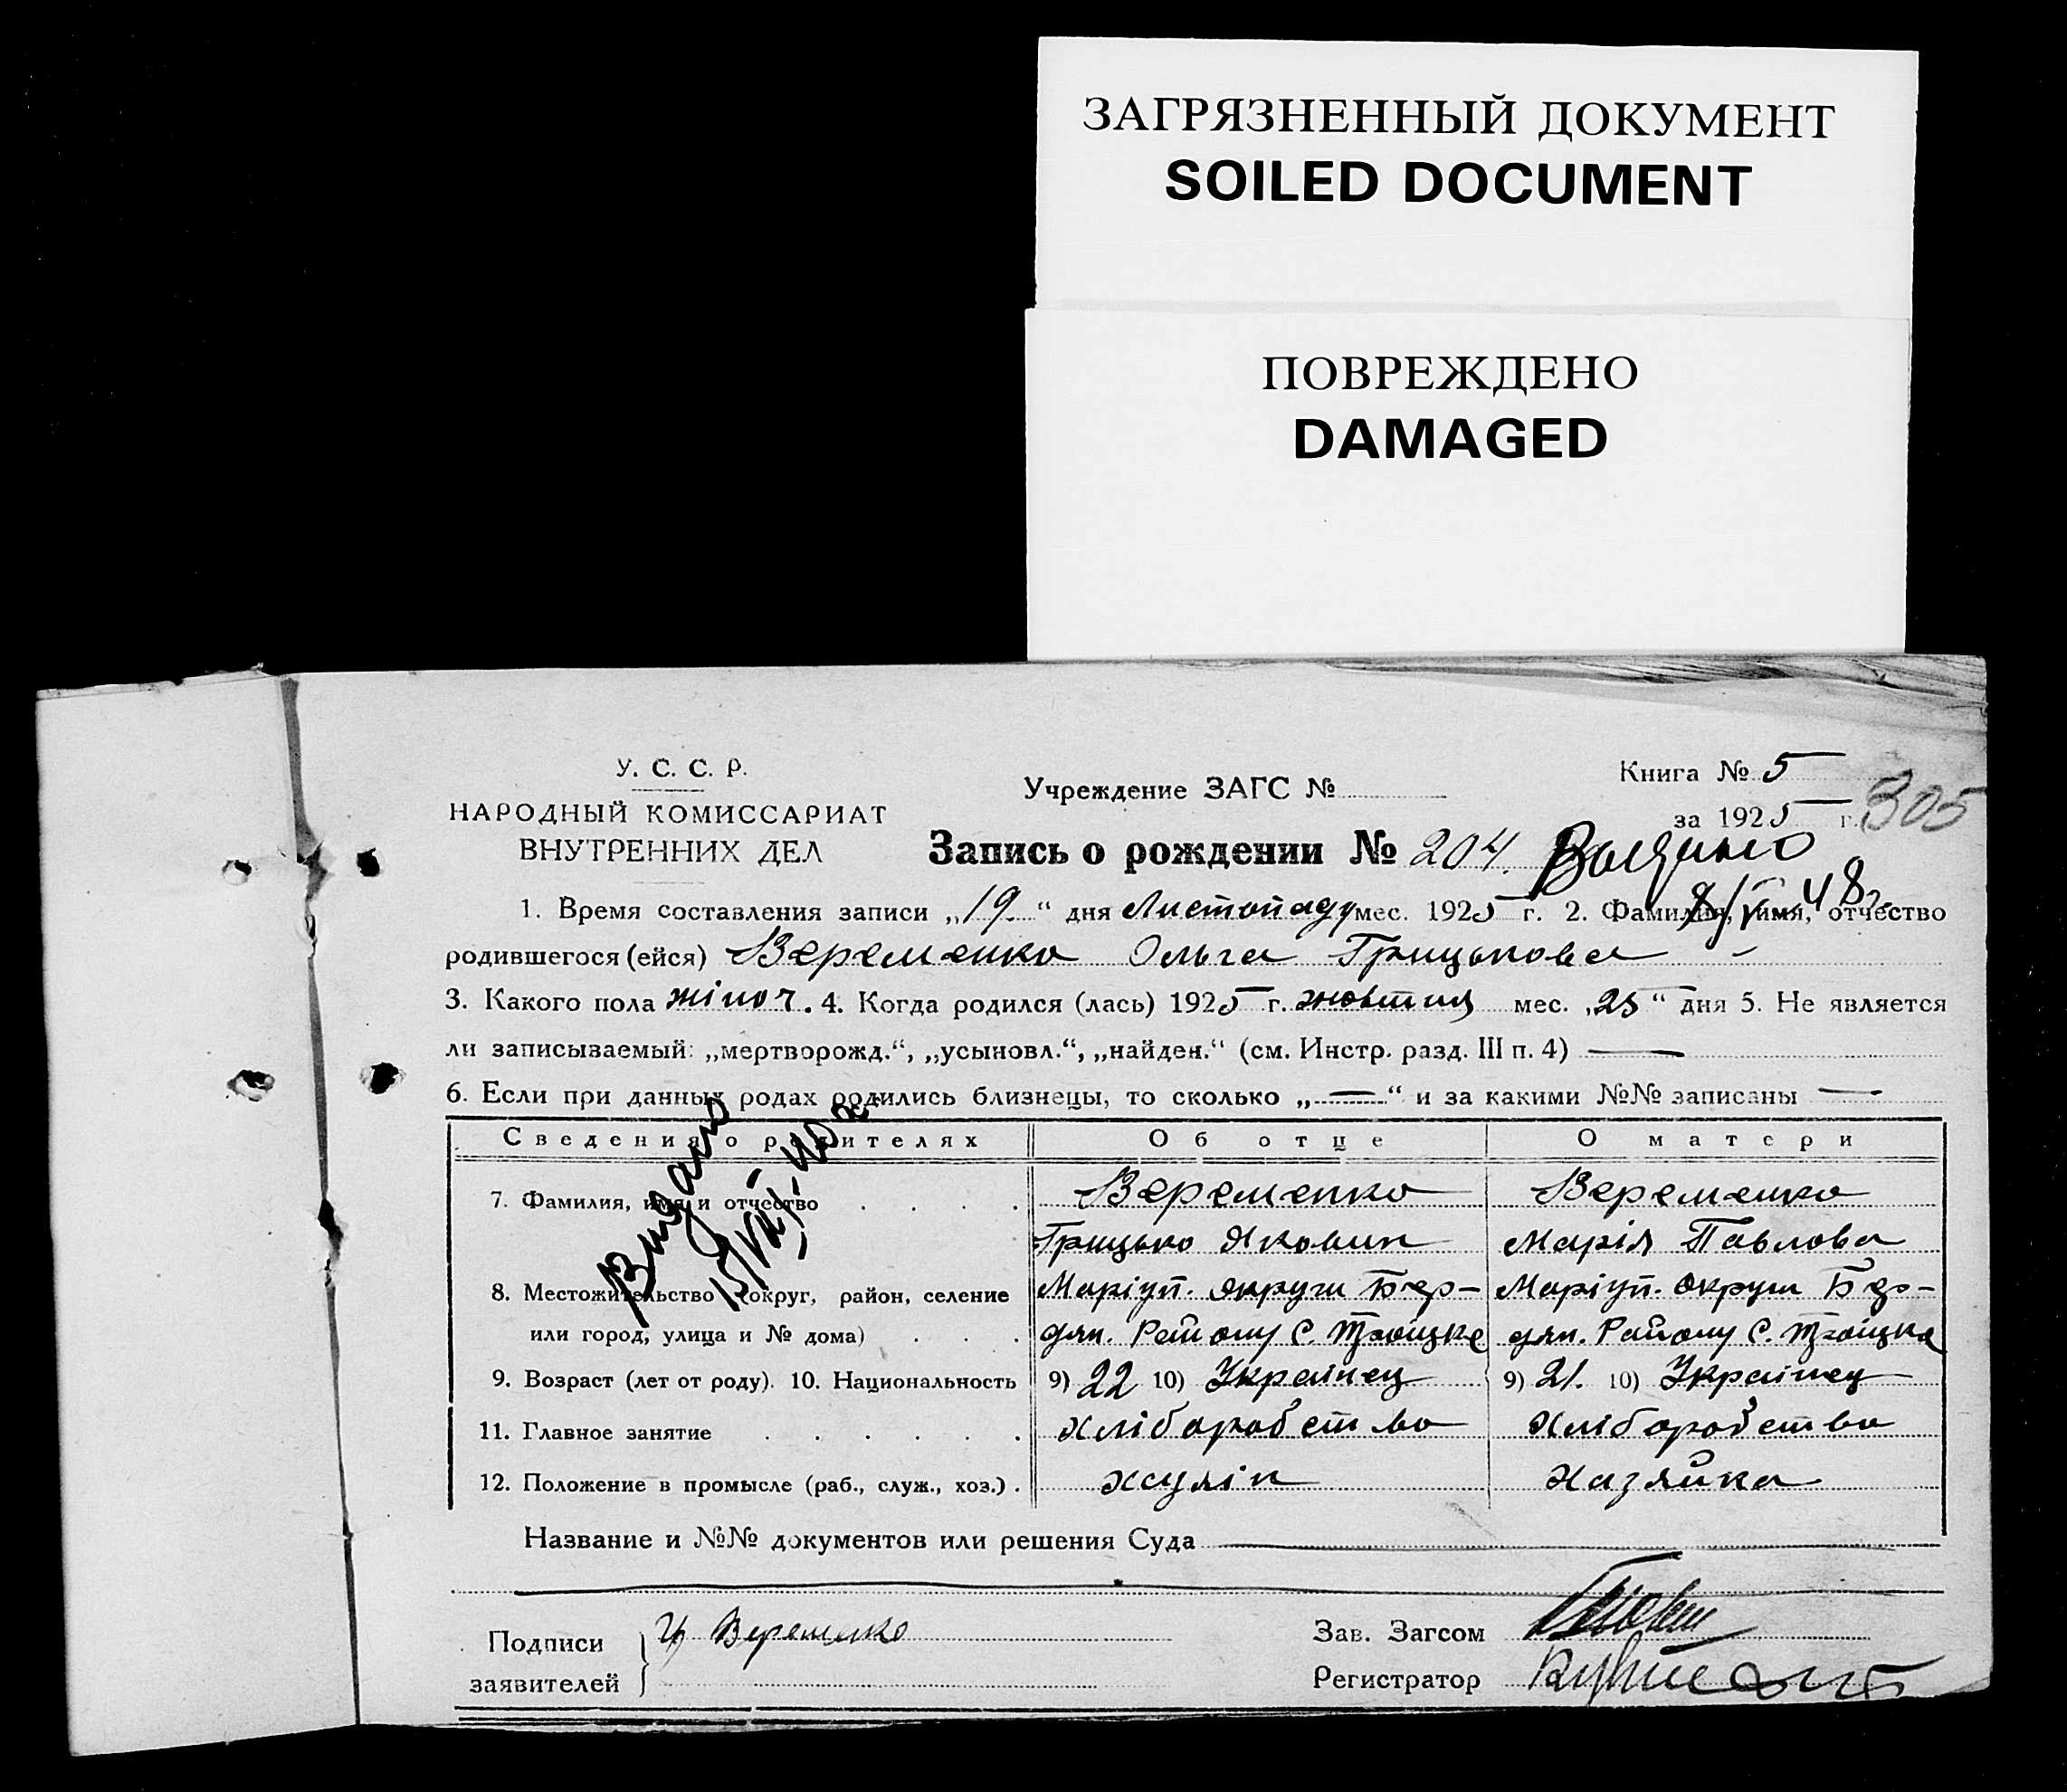 ЗАГРЯЗНЕННЫЙ ДОКУМЕНТ
SOILED DOCUMENT
ПОВРЕЖДЕНО
DAMAGED
У. С. С. Р.
НАРОДНЫЙ КОМИССАРИАТ
ВНУТРЕННИХ ДЕЛ
Учреждение ЗАГС №
Книга № 5
за 1925 г. 305
Запись о рождении № 204.
1. Время составления записи „19“ дня Листопаду мес. 1925 г. 2. Фамилия, имя, отчество
родившегося (ейся) Веременко Ольга Грицькова
3. Какого пола жіноч. 4. Когда родился (лась) 1925 г. жовтня мес. „25“ дня 5. Не является
ли записываемый: „мертворожд.“, „усыновл.“, „найден.“ (см. Инстр. разд. III п. 4) —
6. Если при данных родах родились близнецы, то сколько „—“ и за какими №№ записаны —
Сведения о родителях Об отце О матери
7. Фамилия, имя и отчество . . . . Веременко Веременко
Грицько Яковин Марія Павлова
8. Местожительство (округ, район, селение Маріуп. округи Бер- Маріуп. округи Бер-
или город, улица и № дома) . . . дян. Району С. Троіцке дян. Району С. Троіцке
9. Возраст (лет от роду). 10. Национальность 9) 22 10) Украінец 9) 21. 10) Украінец
11. Главное занятие . . . . . . Хліборобство Хліборобство
12. Положение в промысле (раб., служ., хоз.) . хазяін Хазяйка
Видано
Название и №№ документов или решения Суда
Подписи
заявителей
Гр Веременко
Зав. Загсом
Регистратор